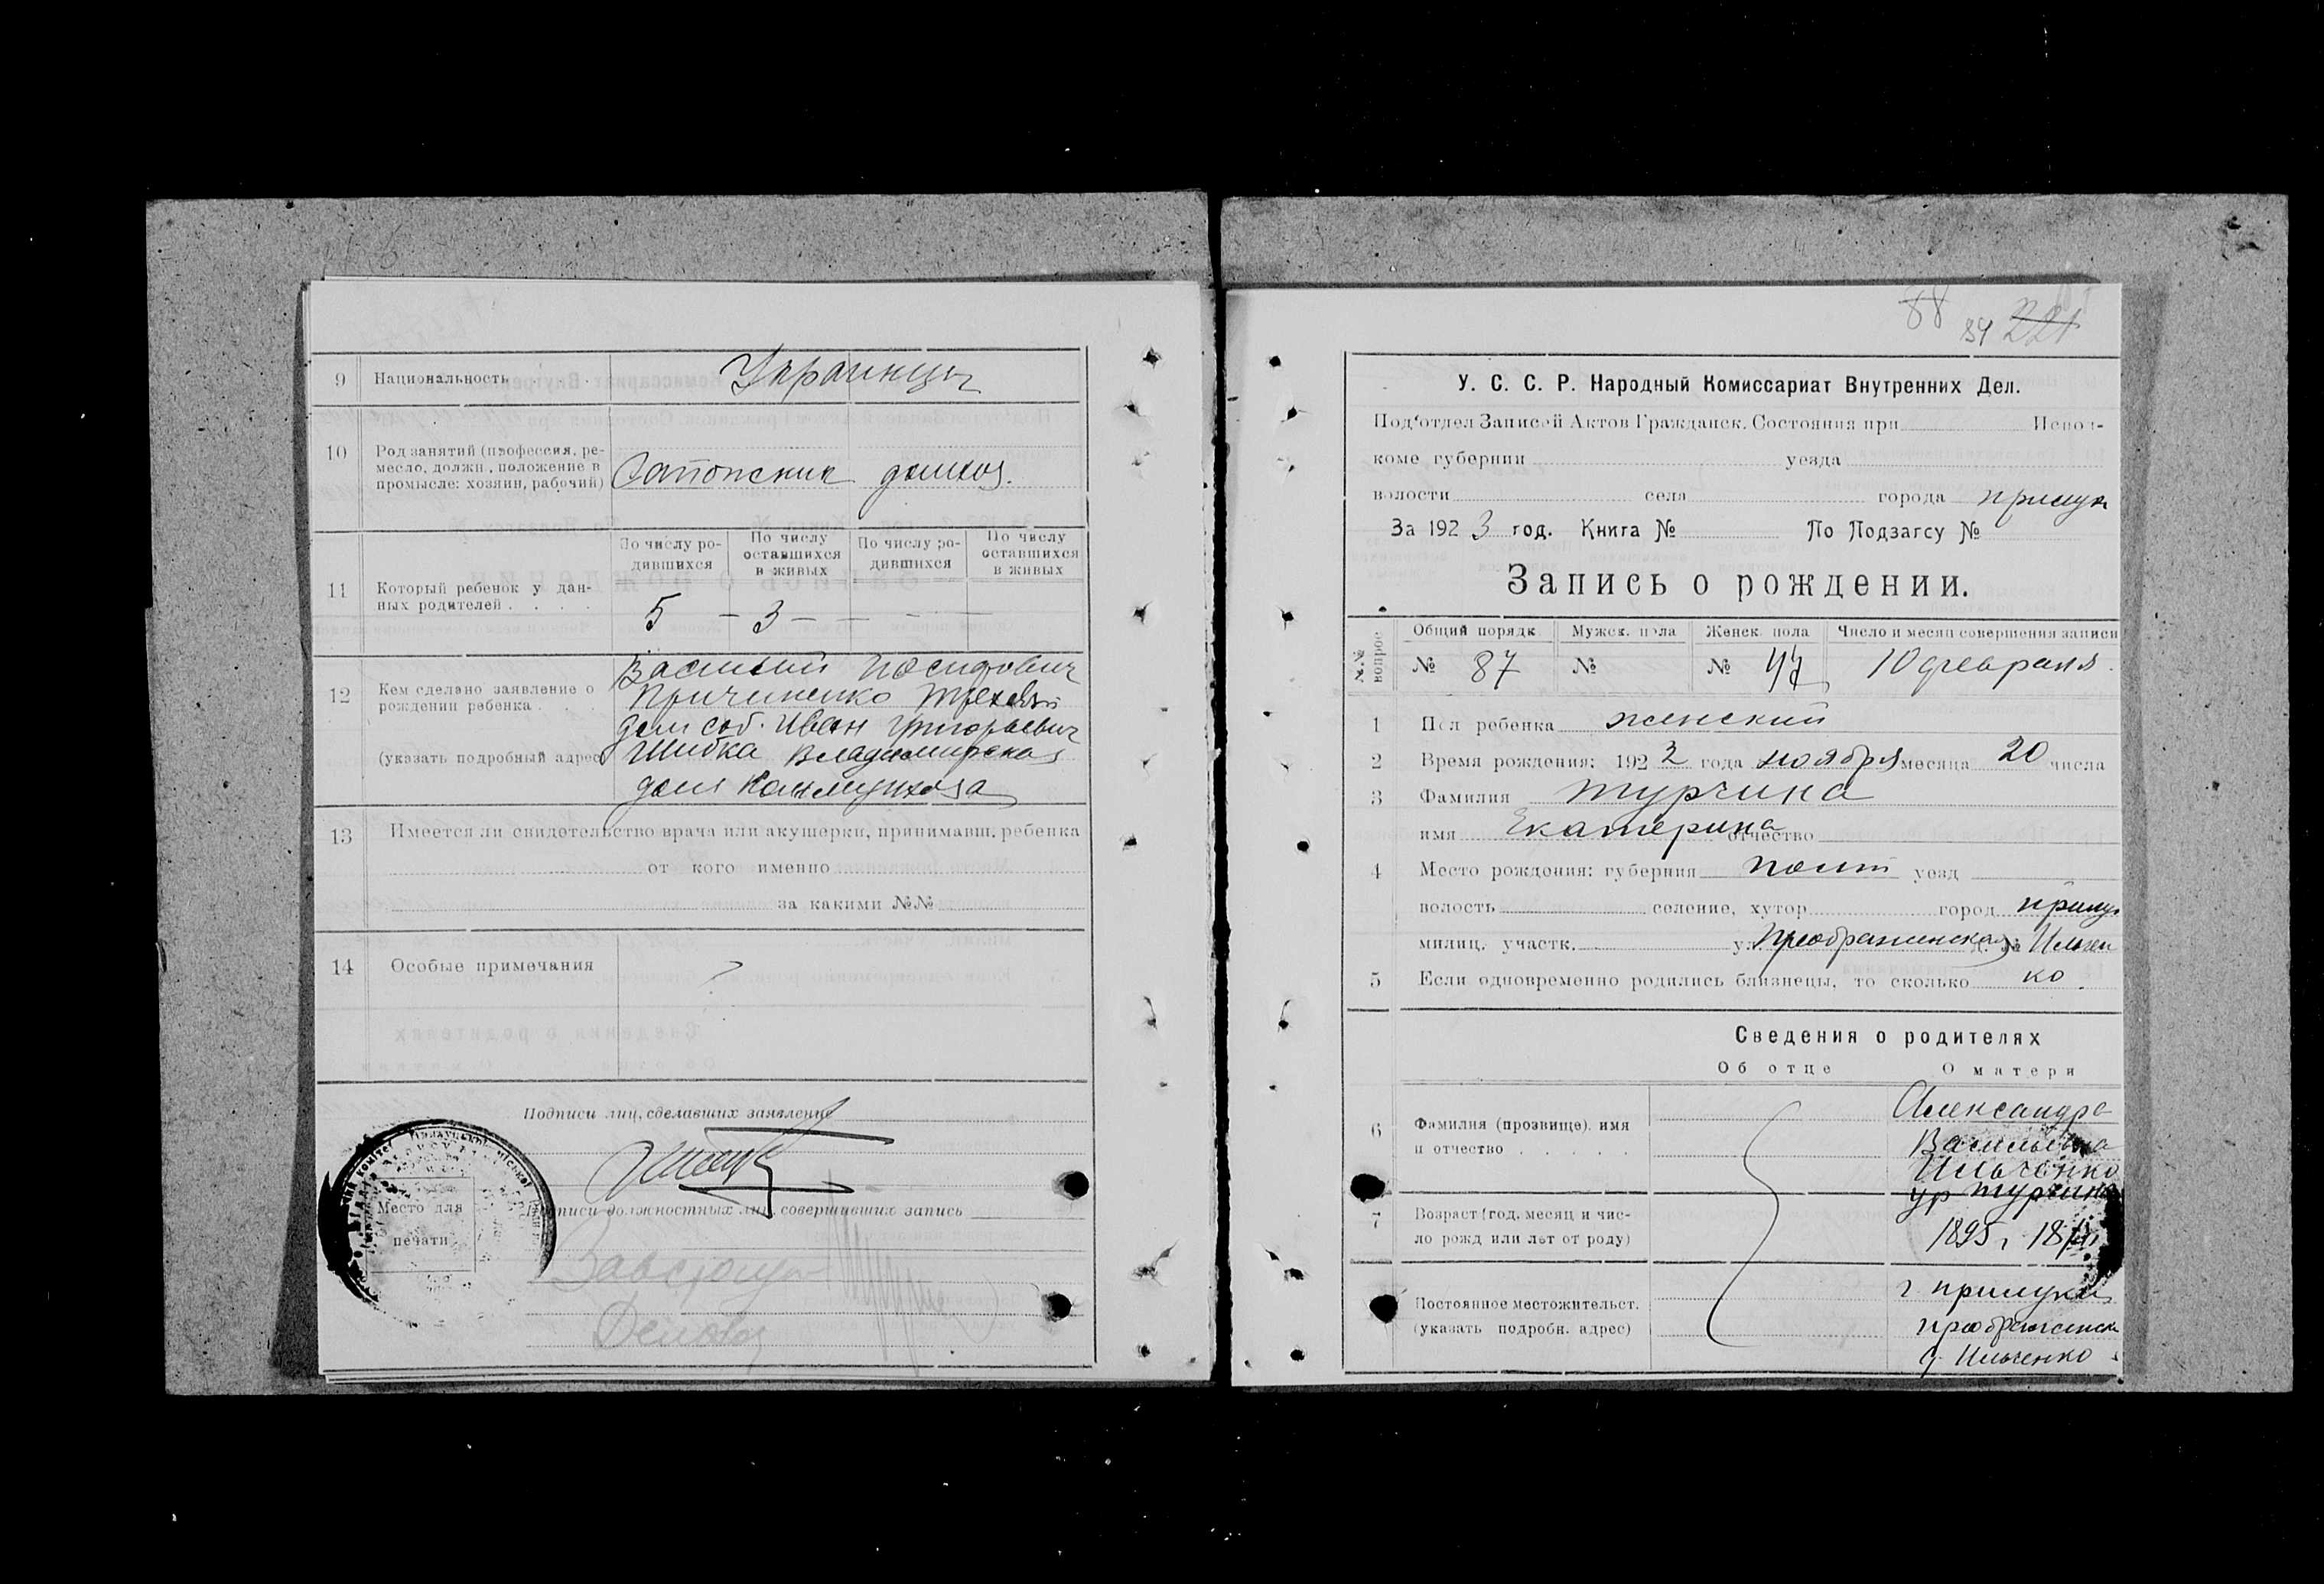 9 Национальность Украинцы
10 Род занятий (профессия, ре-
месло, должн., положение в
промысле: хозяин, рабочий) Сапожник домхоз.
11 Который ребенок у дан-
ных родителей . . . .
По числу ро-
дившихся
По числу
оставшихся
в живых
По числу ро-
дившихся
По числу
оставшихся
в живых
5 — 3 — — — —
12 Кем сделано заявление о
рождении ребенка . . .
(указать подробный адрес)
Василий
Причиненко
дом соб. Иван Григорьевич
Шибка Владимирская
дом
13 Имеется ли свидетельство врача или акушерки, принимавш. ребенка
от кого именно
за какими №№
14 Особые примечания
Подписи лиц, сделавших заявление
Подписи должностных лиц, совершивших запись
Место для
печати
88 89 221
У. С. С. Р. Народный Комиссариат Внутренних Дел.
Под‘отдел Записей Актов Гражданск. Состояния при Испол-
коме губернии уезда
волости села города Прилук
За 1923 год. Книга № По Подзагсу №
Запись о рождении.
№№ вопрос
Общий порядк. Мужск. пола Женск. пола Число и месяц совершения записи
№ 87 № № 44 10 февраля
1 Пол ребенка женский
2 Время рождения: 1922 года ноября месяца 20 числа
3 Фамилия Турчина
имя Екатерина отчество
4 Место рождения: губерния Полт уезд
волость селение, хутор город Прилук
милиц. участк. ул. Преображенская д. № Ильчен
ко
5 Если одновременно родились близнецы, то сколько
Сведения о родителях
Об отце О матери
6 Фамилия (прозвище), имя
и отчество . . . . .
Александра
Васильевна
Ильченко
ур Турчина
7 Возраст (год, месяц и чис-
ло рожд. или лет от роду)
1895 г. 18/
Постоянное местожительст.
(указать подробн. адрес)
г. Прилуки
Преображенск
д. Ильченко